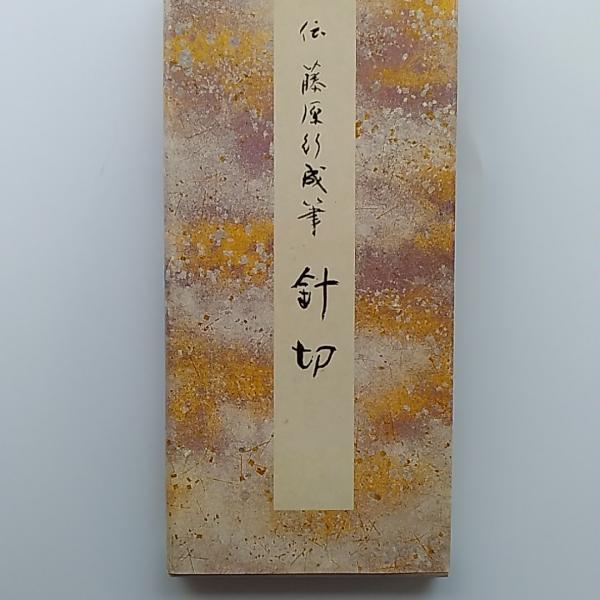 伝藤原行成筆 針切